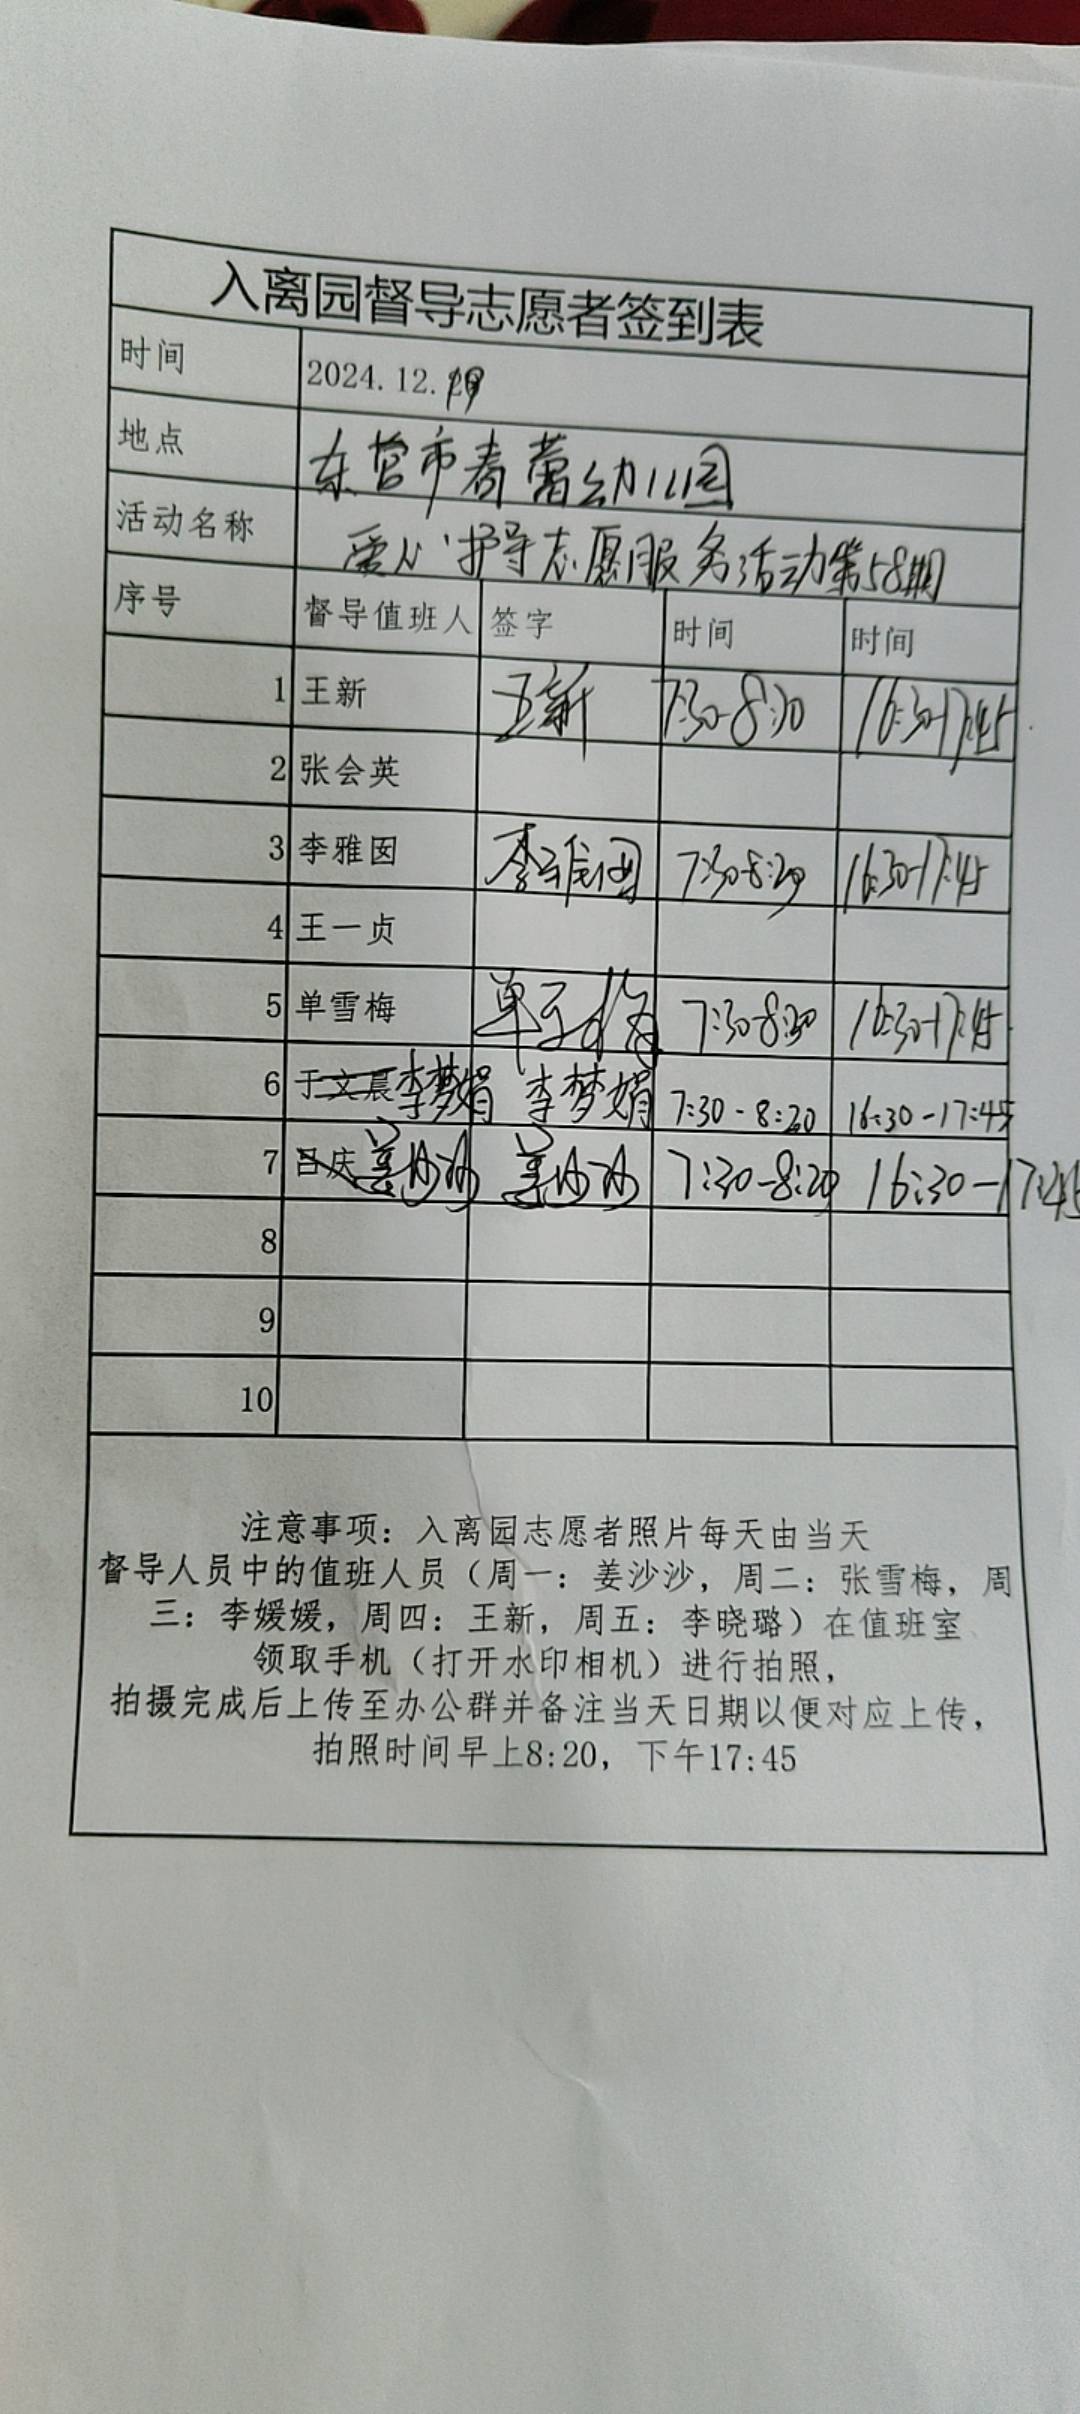 入离园督导志愿者签到表
时间 2024.12.
地点 东营市春蕾幼儿园
活动名称 爱心护导志愿服务活动第58期
序号 督导值班人 签字 时间 时间
1 王新 王新 7:30-8:30 16:30-17:45
2 张会英
3 李雅囡 李雅囡 7:30-8:20 16:30-17:45
4 王一贞
5 单雪梅 单雪梅 7:30-8:30 16:30-17:45
6 于文晨 李梦娟 李梦娟 7:30-8:20 16:30-17:45
7 吕庆 姜沙沙 姜沙沙 7:30-8:20 16:30-17:45
8
9
10
注意事项：入离园志愿者照片每天由当天
督导人员中的值班人员（周一：姜沙沙，周二：张雪梅，周
三：李媛媛，周四：王新，周五：李晓璐）在值班室
领取手机（打开水印相机）进行拍照，
拍摄完成后上传至办公群并备注当天日期以便对应上传，
拍照时间早上8:20，下午17:45